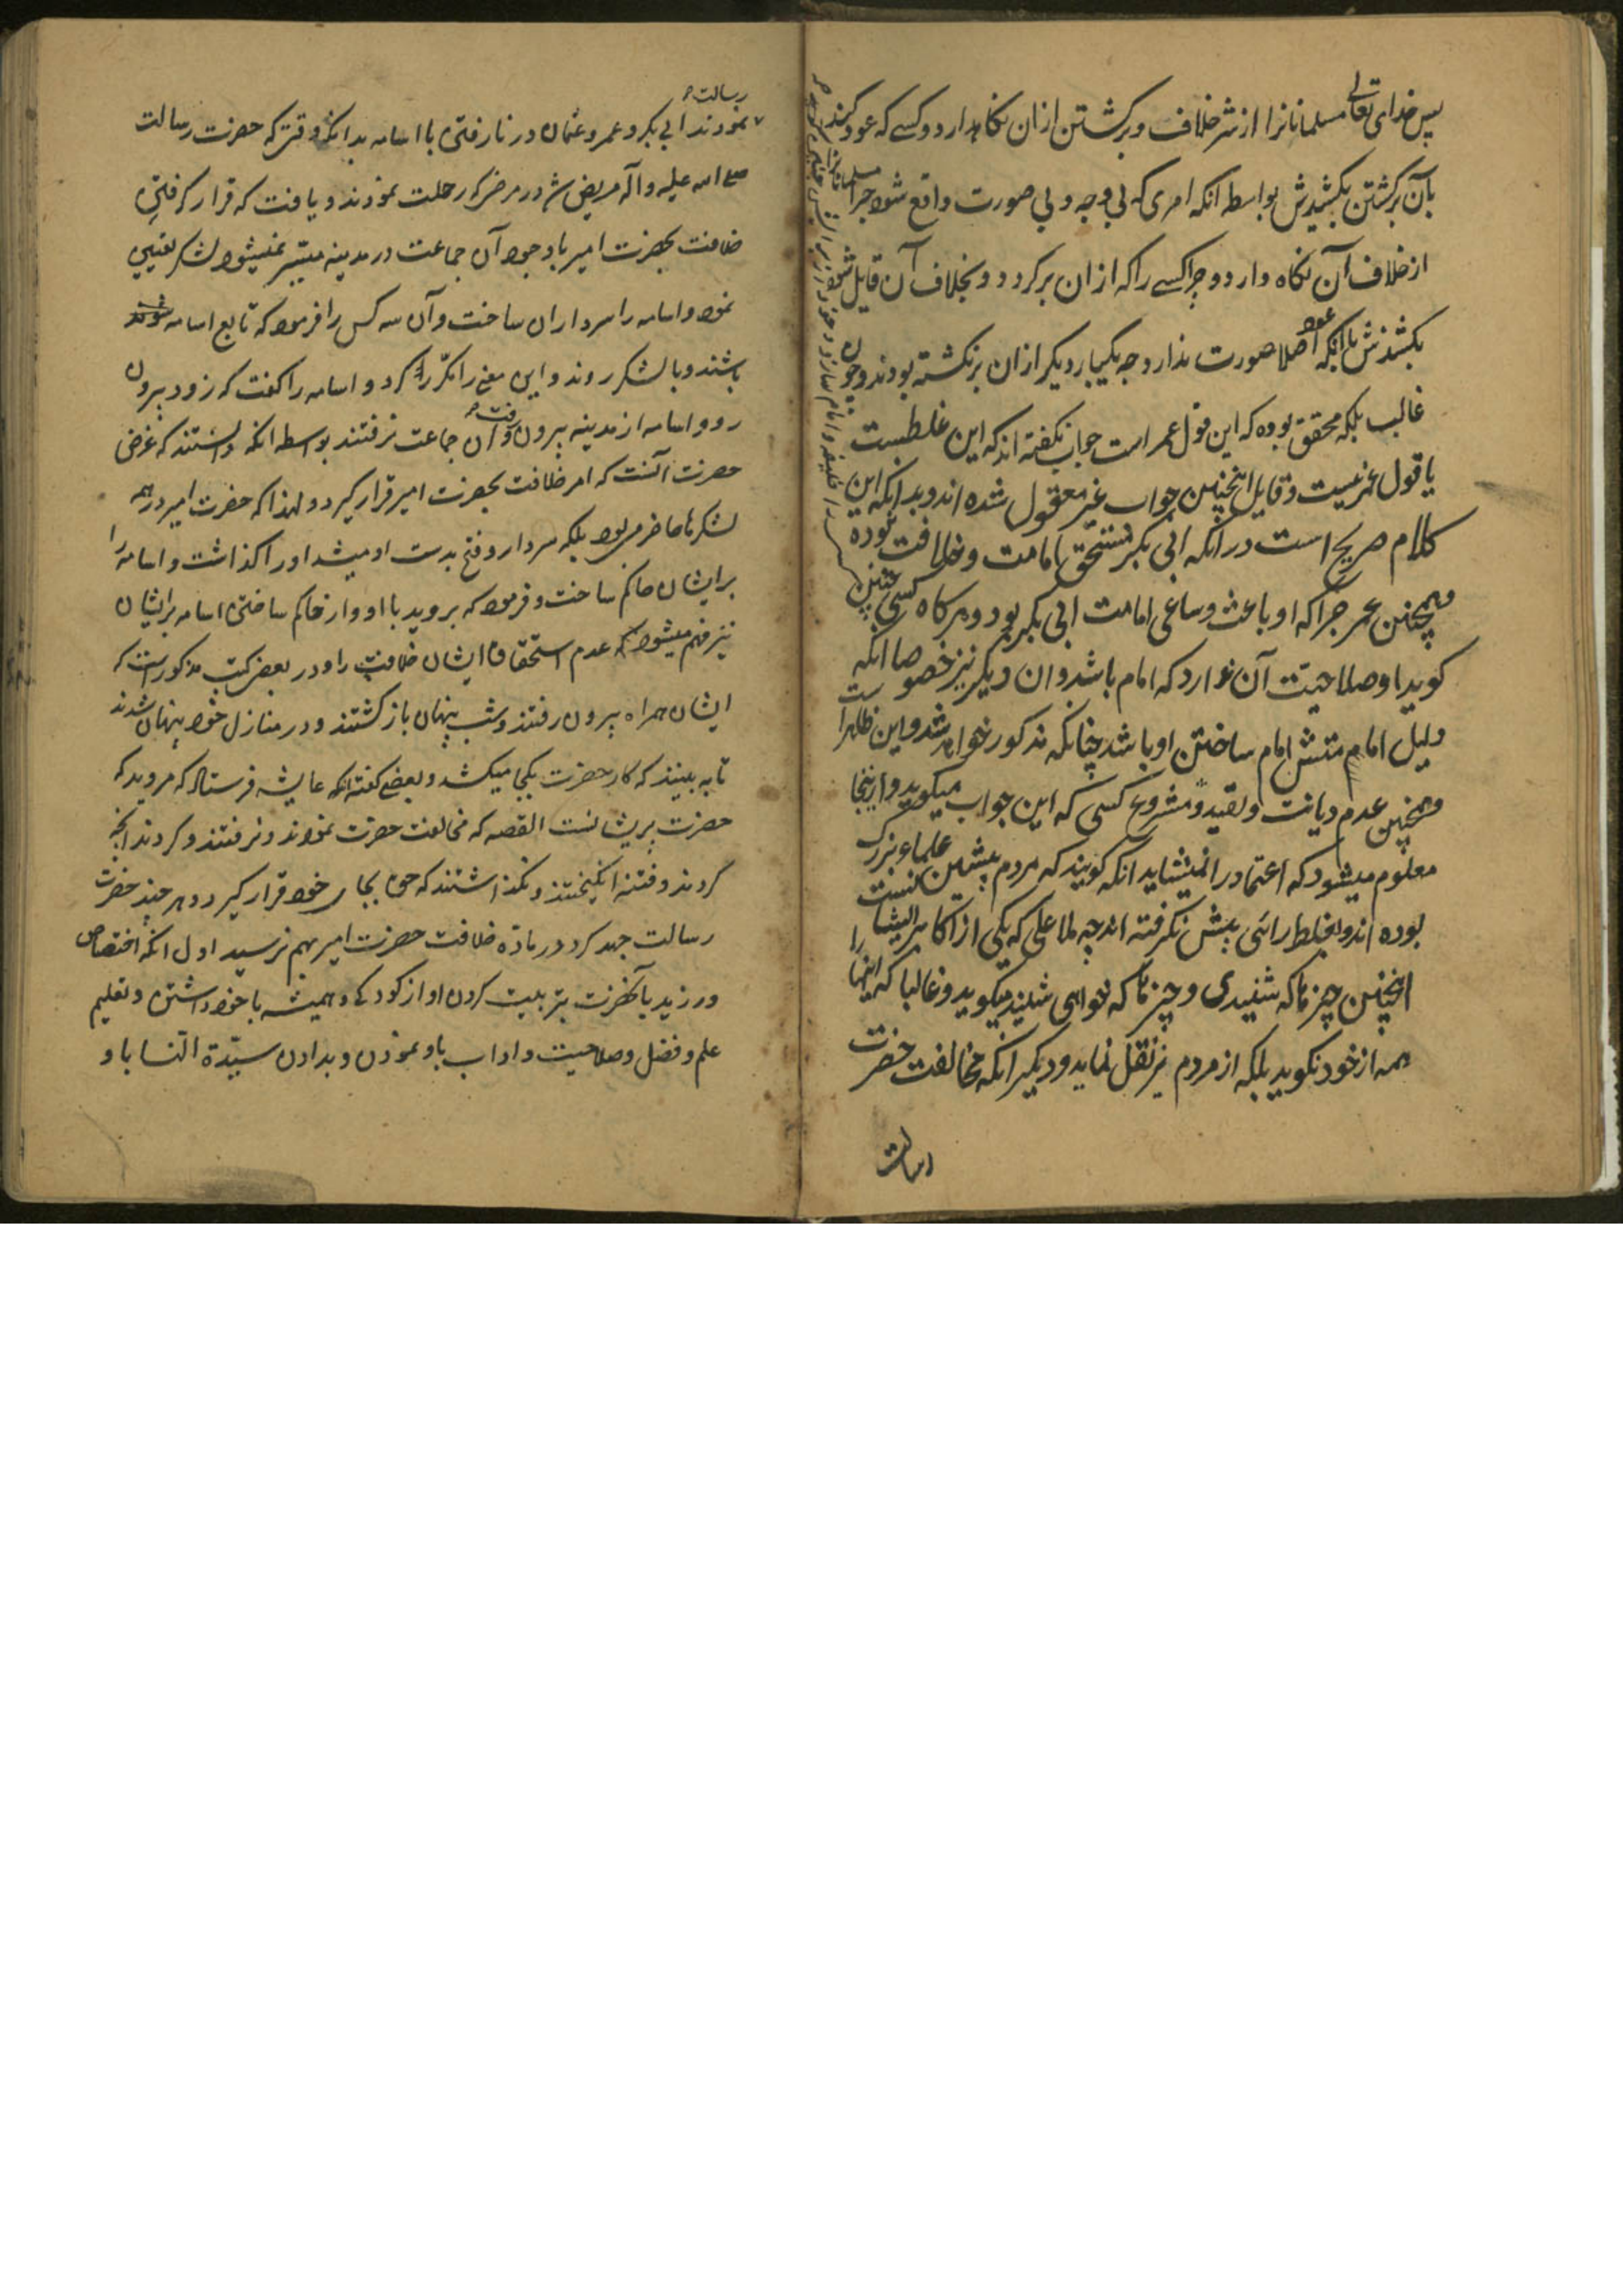 پس خدای تعالی مسلمانانرا از شر خلاف و برگشتن ازان نکاهدارد و کسی که عود کند
بآن برکشتن بکشیدش بواسطه انکه امری که بی وجه و بی صورت واقع شود چرا مسلمانانرا
از خلاف آن نکاه دارد و چرا کسے را که ازان برکردد و بخلاف آن قایل شود
بکشندش با انکه عود اصلا صورت ندارد چه یکبار دیکر ازان برنکشته بودند و چون
غالب بلکه محقق بوده که این قول عمر است جواب نکفته اند که این غلطست
یا قول عمر نیست و قایل اینچنین جواب غیر معقول شده اند و بدانکه این
کلام صریح است در انکه ابی بکر مستحق امامت و خلافت نبوده
و همچنین عمر چرا که او باعث و ساعی امامت ابی بکر بود و هرکاه کسی چنین
کوید او صلاحیت آن ندارد که امام باشد و ان دیکر نیز خصوصا انکه
دلیل امامتش امام ساختن او باشد چنانکه مذکور خواهد شد و این ظاهرا ست
و همچنین عدم دیانت و تقید و مشروع کسی که این جواب میکوید و ازینجا
معلوم میشود که اعتماد را نمیشاید انکه کویند که مردم پیشین علماء بزرک
بوده اند و بغلط رائی پیش نکرفته اند چه ملا علی که یکی از اکابر ایشا نست
اینچنین چیزها که شنیدی و چیزها که خواهی شنید میکوید و غالبا که اینها را
همه از خود نکوید بلکه از مردم نیز نقل نماید و دیکر انکه مخالفت حضرت
رسالت
رسالت
نمودند ابی بکر و عمر و عثمان در نارفتن با اسامه بدانکه وقتی که حضرت رسالت
صلے اسه علیه و آله مریض شد در مرض که رحلت نمودند و یافت که قرار کرفتن
خلافت بحضرت امیر با وجود آن جماعت در مدینه میسّر نمیشود لشکر تعیین
نمود و اسامه را سردار ان ساخت و آن سه کس را فرمود که تابع اسامه شوند
باشند و با لشکر روند و این معنے را مکرّر کرد و اسامه را کفت که زود بیرون
رو و اسامه از مدینه بیرون رفت و آن جماعت نرفتند بواسطه انکه دانستند که غرض
حضرت آنست که امر خلافت بحضرت امیر قرار کیرد و لهذا که حضرت امیر در همه
لشکرها حاضر می بود بلکه سردار و فتح بدست او میشد او را کذاشت و اسامه را
برایشان حاکم ساخت و فرمود که بروید با او و از حاکم ساختن اسامه برایشان
نیز فهم میشود که عدم استحقاق ایشان خلافت را و در بعضی کتب مذکور است که
ایشان همراه بیرون رفتند و شب پنهان بازکشتند و در منازل خود پنهان شدند
تا به بینند که کار حضرت بکجا میکشد و بعضے کفته اند که عایشه فرستاد که مروید که
حضرت پریشانست القصه که مخالفت حضرت نمودند و نرفتند و کردند انچه
کردند و فتنه انکیختند و نکذاشتند که حق بجای خود قرار کیرد و هر چند حضرت
رسالت جهد کرد در ماده خلافت حضرت امیر بهم نرسید اول انکه اختصاص
ورزید بآنحضرت بتربیت کردن او از کودکے و همیشه با خود داشتن و تعلیم
علم و فضل و صلاحیت و اداب باو نمودن و بدادن سیّدة النسا باو